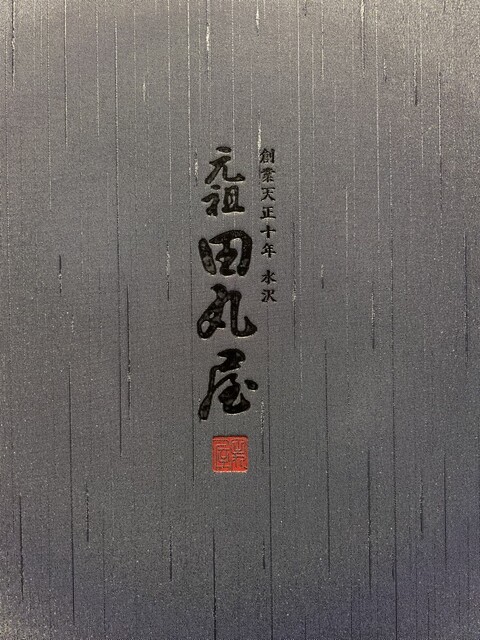 創業天正十年 水沢
元祖 田丸屋